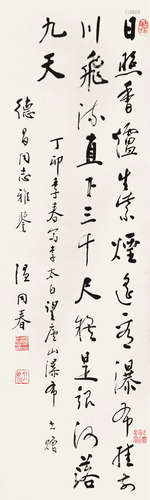 日照香爐生紫煙遙看瀑布掛前
川飛流直下三千尺疑是銀河落
九天
丁卯季春寫李太白望廬山瀑布
德昌同志雅鑒
伍同春